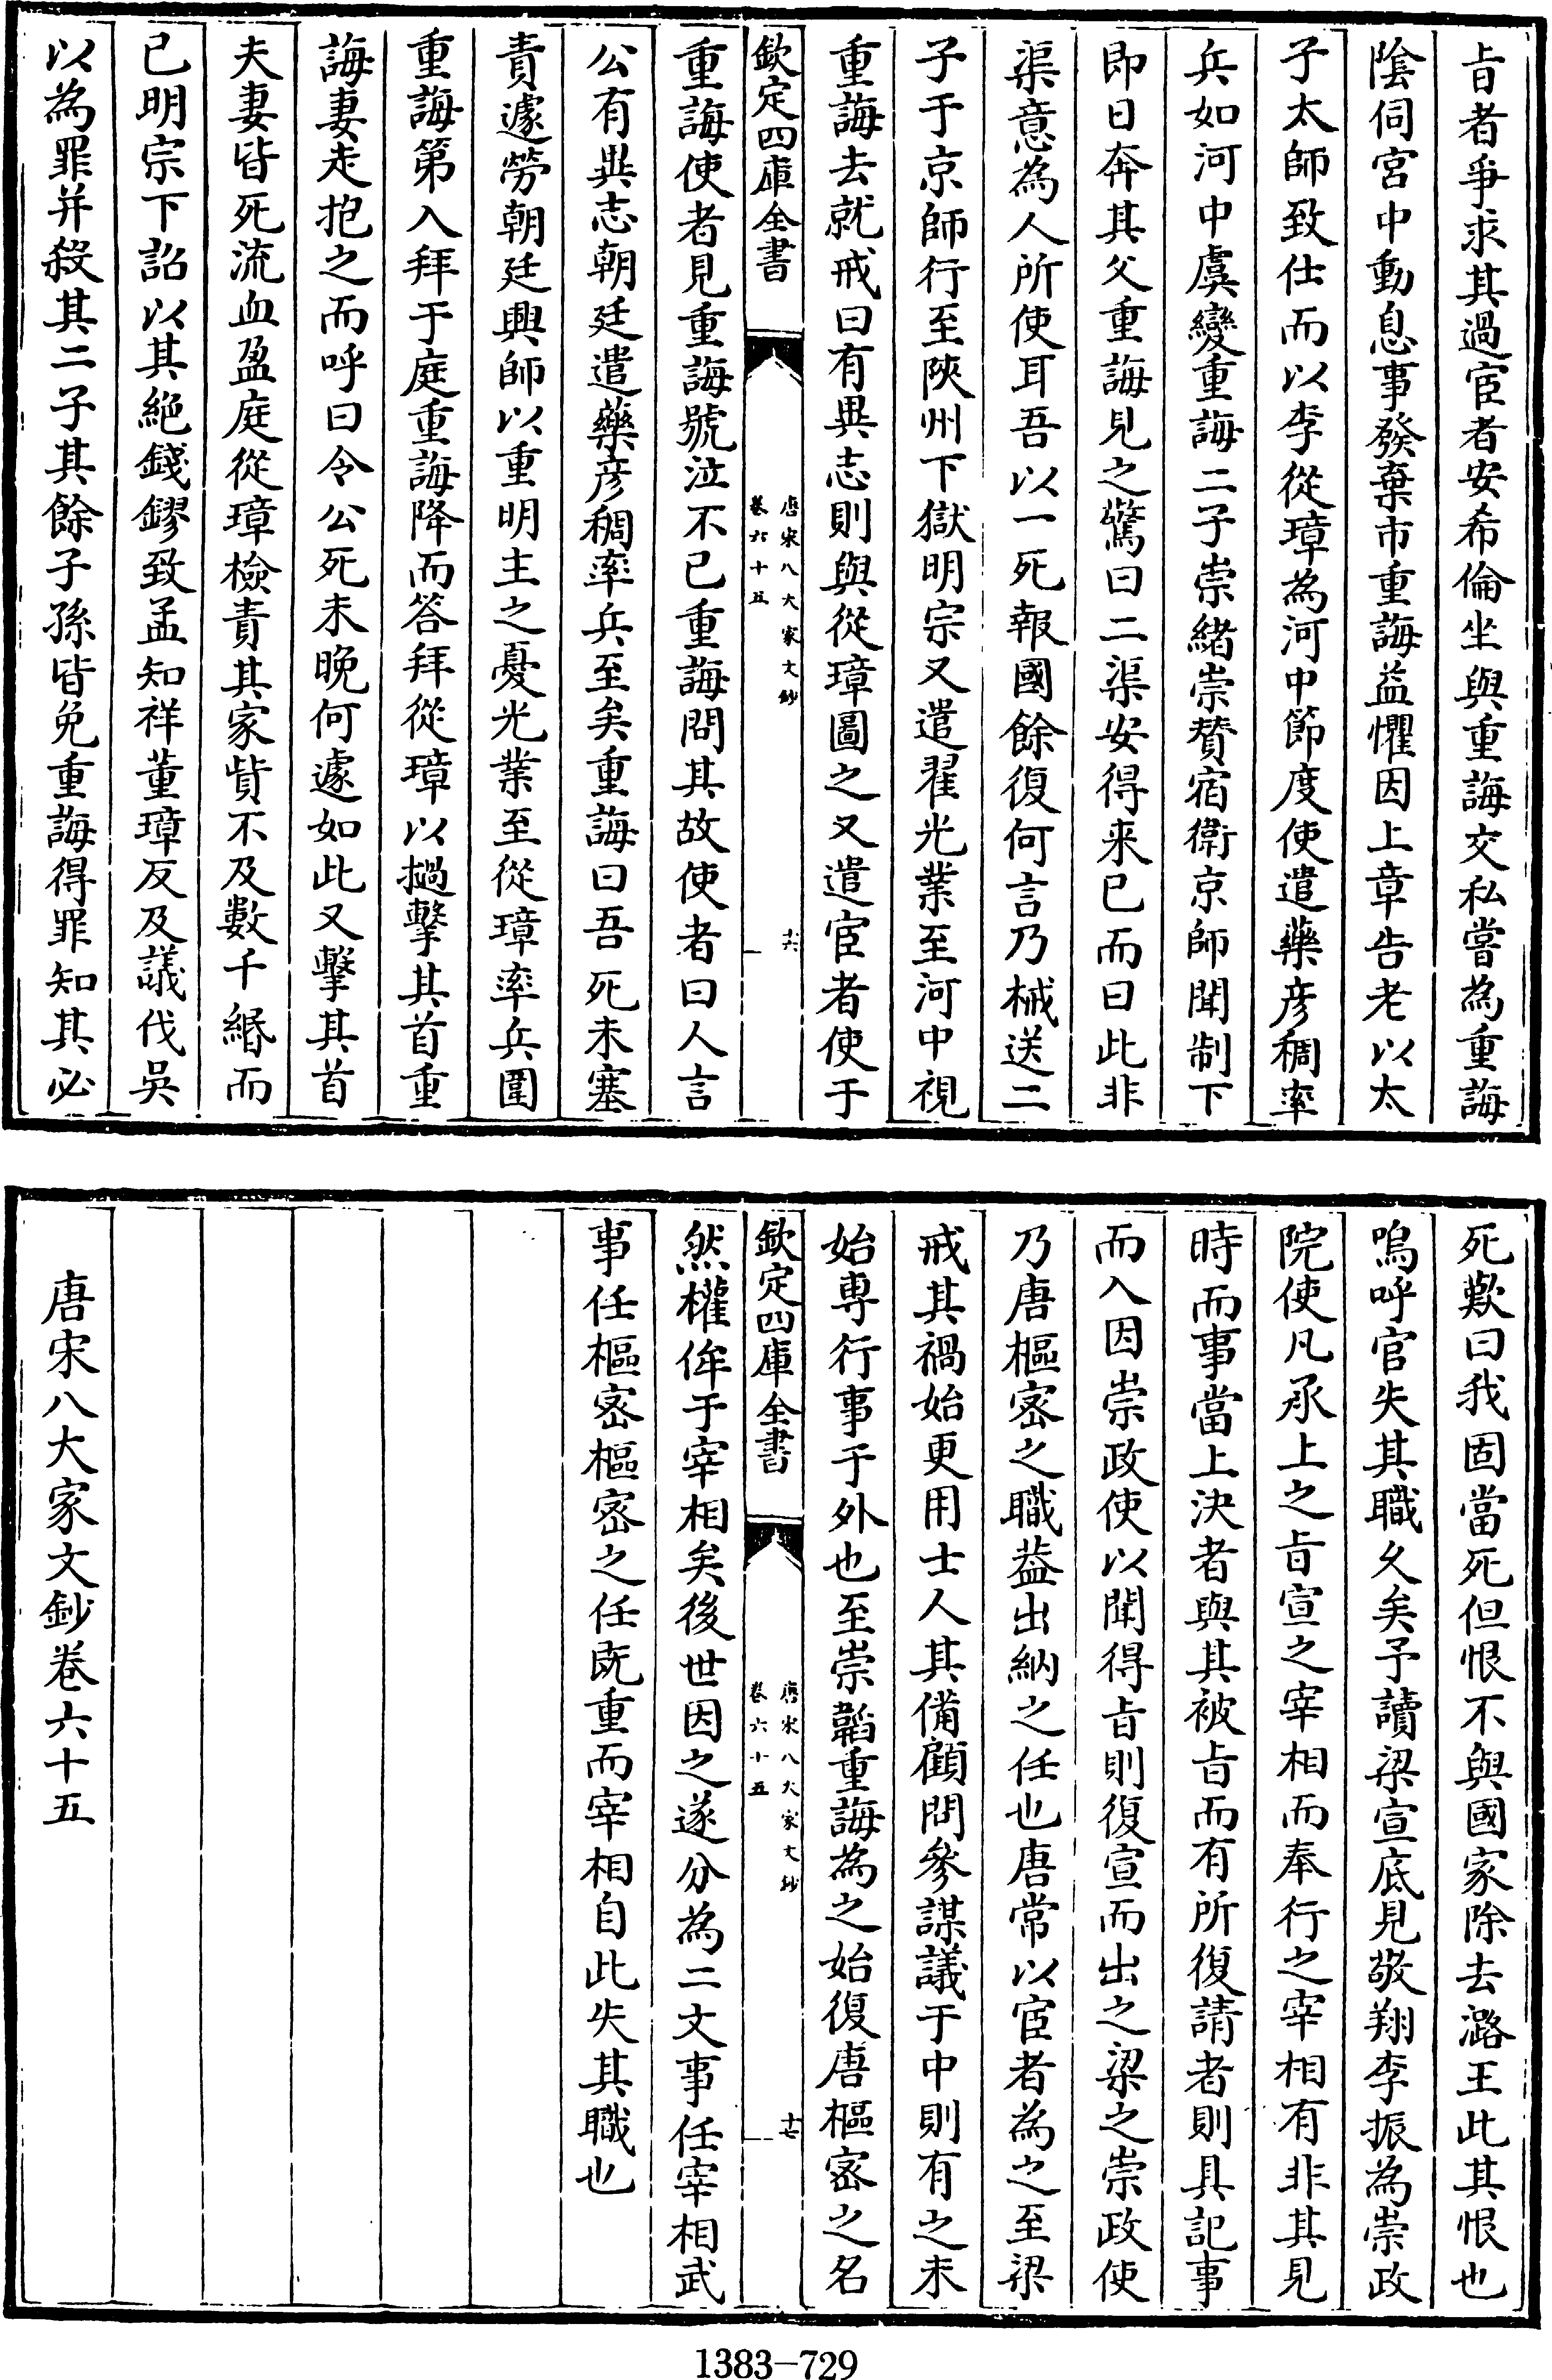 旨者爭求其過宦者安希倫坐與重誨交私嘗為重誨
陰伺宮中動息事發棄市重誨益懼因上章告老以太
子太師致仕而以李從璋為河中節度使遣藥彥稠率
兵如河中虞變重誨二子崇緒崇贊宿衛京師聞制下
即日奔其父重誨見之驚曰二渠安得来已而曰此非
渠意為人所使耳吾以一死報國餘復何言乃械送二
子于京師行至陝州下獄明宗又遣翟光業至河中視
重誨去就戒曰有異志則與從璋圖之又遣宦者使于
欽定四庫全書
唐宋八大家文鈔
卷六十五
十六
重誨使者見重誨號泣不已重誨問其故使者曰人言
公有異志朝廷遣藥彥稠率兵至矣重誨曰吾死未塞
責遽勞朝廷興師以重明主之憂光業至從璋率兵圍
重誨第入拜于庭重誨降而答拜從璋以檛擊其首重
誨妻走抱之而呼曰令公死未晚何遽如此又擊其首
夫妻皆死流血盈庭從璋檢責其家貲不及數千緡而
已明宗下詔以其絕錢鏐致孟知祥董璋反及議伐吳
以為罪并殺其二子其餘子孫皆免重誨得罪知其必
死歎曰我固當死但恨不與國家除去潞王此其恨也
嗚呼官失其職久矣予讀梁宣底見敬翔李振為崇政
院使凡承上之旨宣之宰相而奉行之宰相有非其見
時而事當上決者與其被旨而有所復請者則具記事
而入因崇政使以聞得旨則復宣而出之梁之崇政使
乃唐樞密之職葢出納之任也唐常以宦者為之至梁
戒其禍始更用士人其備顧問參謀議于中則有之未
始專行事于外也至崇韜重誨為之始復唐樞密之名
欽定四庫全書
唐宋八大家文鈔
卷六十五
十七
然權侔于宰相矣後世因之遂分為二文事任宰相武
事任樞密樞密之任既重而宰相自此失其職也
唐宋八大家文鈔卷六十五
1383-729